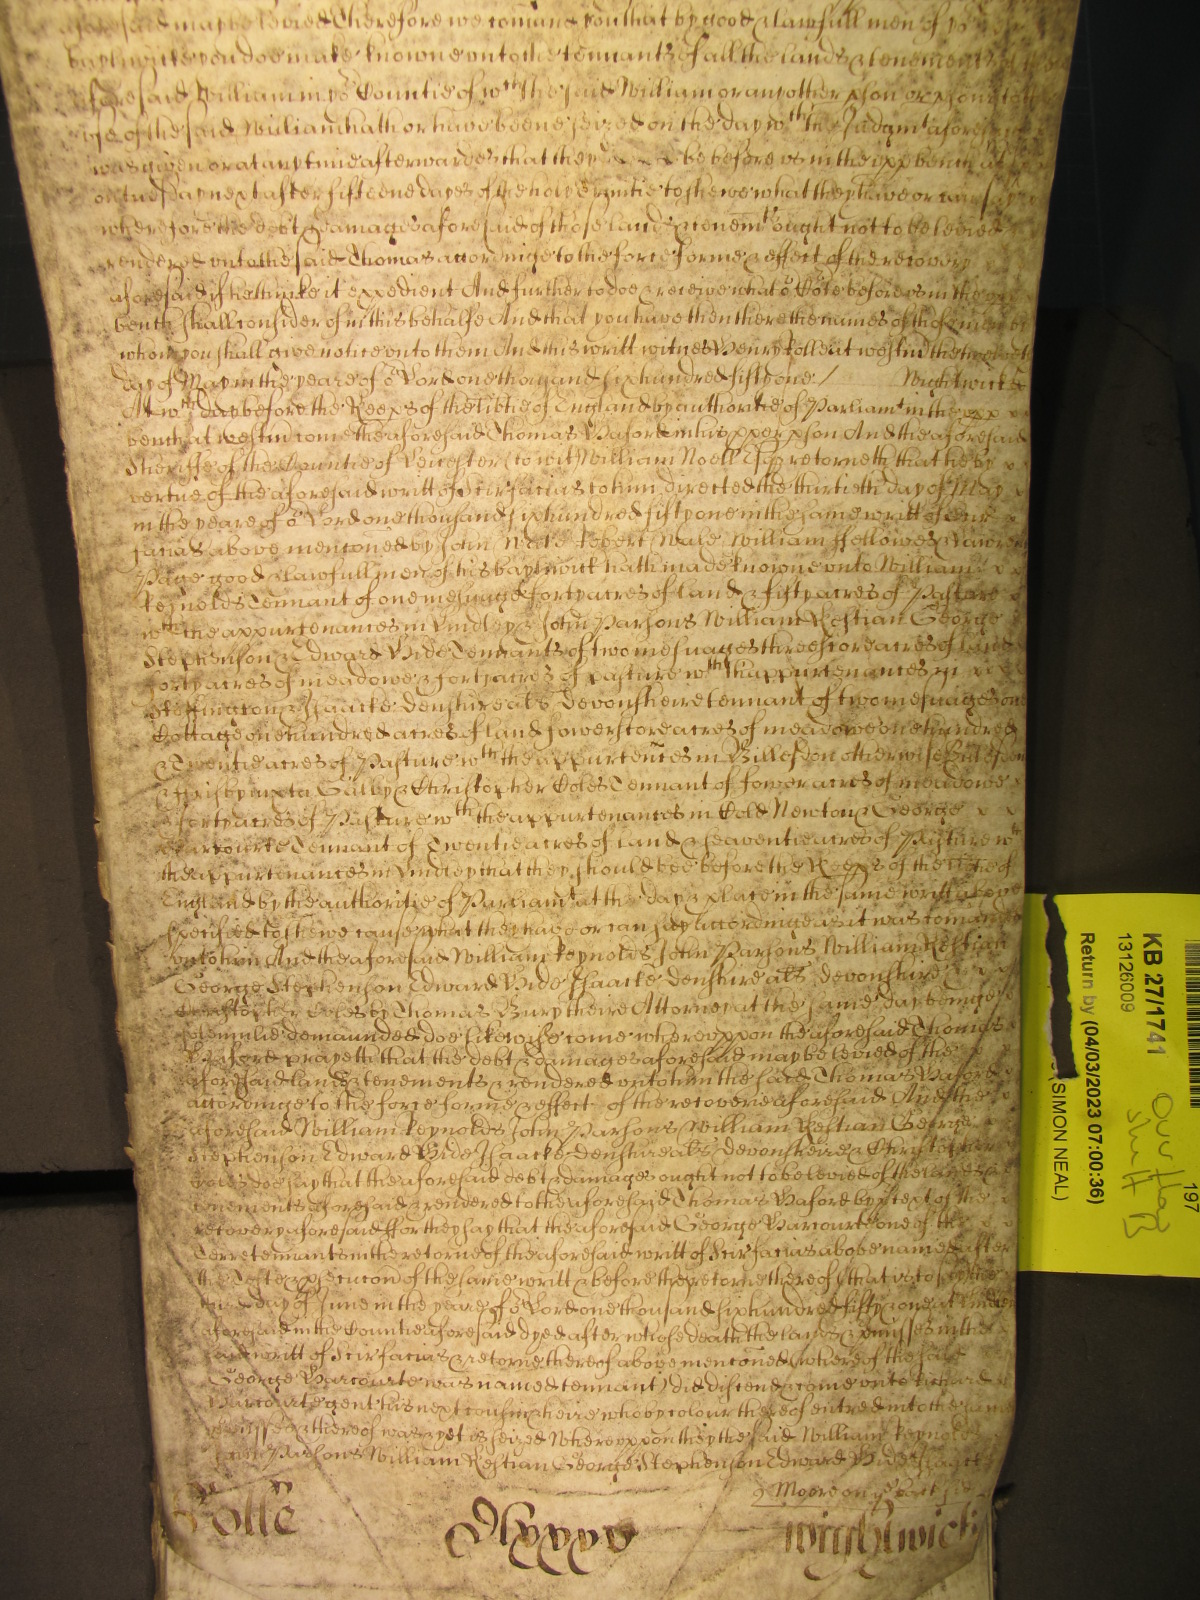 aforesaid may be levied Therefore we comand you that by good & lawfull men of yo
baylywicke you doe make knowne unto the tennants of all the lands & tenements
aforesaid William in yor Countie of wch the said William or any other pson or psons to the
use of the said William hath or have beene seized on the day wth the Judgmt aforesaid
was given or at any time afterwardes that they be before us in the upp bench at
on tuesday next after fifteene dayes of the holy Trinitie to shewe what they have or can say
wherefore the debt & damages aforesaid of those lands & tenemts ought not to be levied
rendered unto the said Thomas accordinge to the force forme & effect of the recovery
aforesaid if hee thinke it expedient And further to doe & receive what or Cote before us in the upp
bench shall consider of in this behalfe And that you have then there the names of those men by
whom you shall give notice unto them And this writt witnes Henry Rolle at westm the
day of May in the yeare of or Lord one thousand six hundred fifty one / Wightwicke
At wch day before the Keeps of the Libtie of England by authoritie of Parliamt in the upp
bench at westm come the aforesaid Thomas Baford in his pper pson And the aforesaid
Sheriffe of the Countie of Leicester (to wit) William Noell Esqr retorneth that he by
vertue of the aforesaid writt of Scir facias to him directed the thirtieth day of May
in the yeare of or Lord one thousand six hundred fifty one in the same writt of Scire
facias above menconed by John Robert Wale William ffellowes & Lawrence
Page good & lawfull men of his baylywick hath made knowne unto William
Reynolds Tennant of one mesuage forty acres of land & fifty acres of Pasture
wth the appurtenances in Lindley & John Parsons William Kestian George
Stephenson & Edward Hide Tennants of two mesuages threescore acres of land
forty acres of meadowe & forty acres of pasture wth thappurtenances in
Skeffington & Isaacke Denshire als Devonsheire tennant of two mesuages one
Cottage one hundred acres of land fowerscore acres of meadowe one hundred
& Twentie acres of Pasture wth the appurtences in Billesdon otherwise
& ffrisby iuxta Galby & Christopher Coles Tennant of fower acres of meadowe
& forty acres of Pasture wth the appurtenances in Cold Newton & George
Harcourte Tennant of Twentie acres of land & seaventie acres of Pasture wth
the appurtenances in Lindley that they should bee before the Keeps of the libtie of
England by the authoritie of Parliamt at the day & place in the same writt above
specified to shewe cause what they have or can say accordinge as it was comanded
unto him And the aforesaid William Reynolds John Parsons William Kestian
George Stephenson Edward Hide Isaacke Denshire als Devonshire
Christopher Coles by Thomas Bury theire Attorney at the same day beinge
solemnlie demaunded doe likewise come whereuppon the aforesaid Thomas
Baford prayeth that the debt & damages aforesaid may be levied of the
aforesaid lands & tenements & rendered unto him the said Thomas Baford
accordinge to the force forme & effect of the recoverie aforesaid And the
aforesaid William Reynolds John Parsons William Kestian George
Stephenson Edward Hide Isaacke Denshire als Devonsheire & Christopher
Coles doe say that the aforesaid debt & damages ought not to be levied of the lands &
tenements aforesaid & rendered to the aforesaid Thomas Baford by ptext of the
recovery aforesaid ffor they say that the aforesaid George Harcourte one of the
Terretennants in the retorne of the aforesaid writt of Scir facias above named after
the Teste & execucon of the same writt & before the retorne thereof that is to say the
day of June in the yeare of or Lord one thousand six hundred fifty & one at Lindley
aforesaid in the Countie aforesaid dyed after whose death the lands & pmisses in the
said writt of Scir facias & retorne thereof above menconed (whereof the said
George Harcourte was named tennant) did discend & come unto Richard
Harcourte gent his next cousin & heire who by colour thereof entred into the same
pmisses & thereof was & yet is seized Whereuppon they the said William Reynolds
John Parsons William Kestian George Stephenson Edward Hide Isaacke
Moore
Rolle
Dlxxxv
Wightwick
197
KB 27/1741
13126009
Return by (04/03/2023 07:00:36)
(SIMON NEAL)